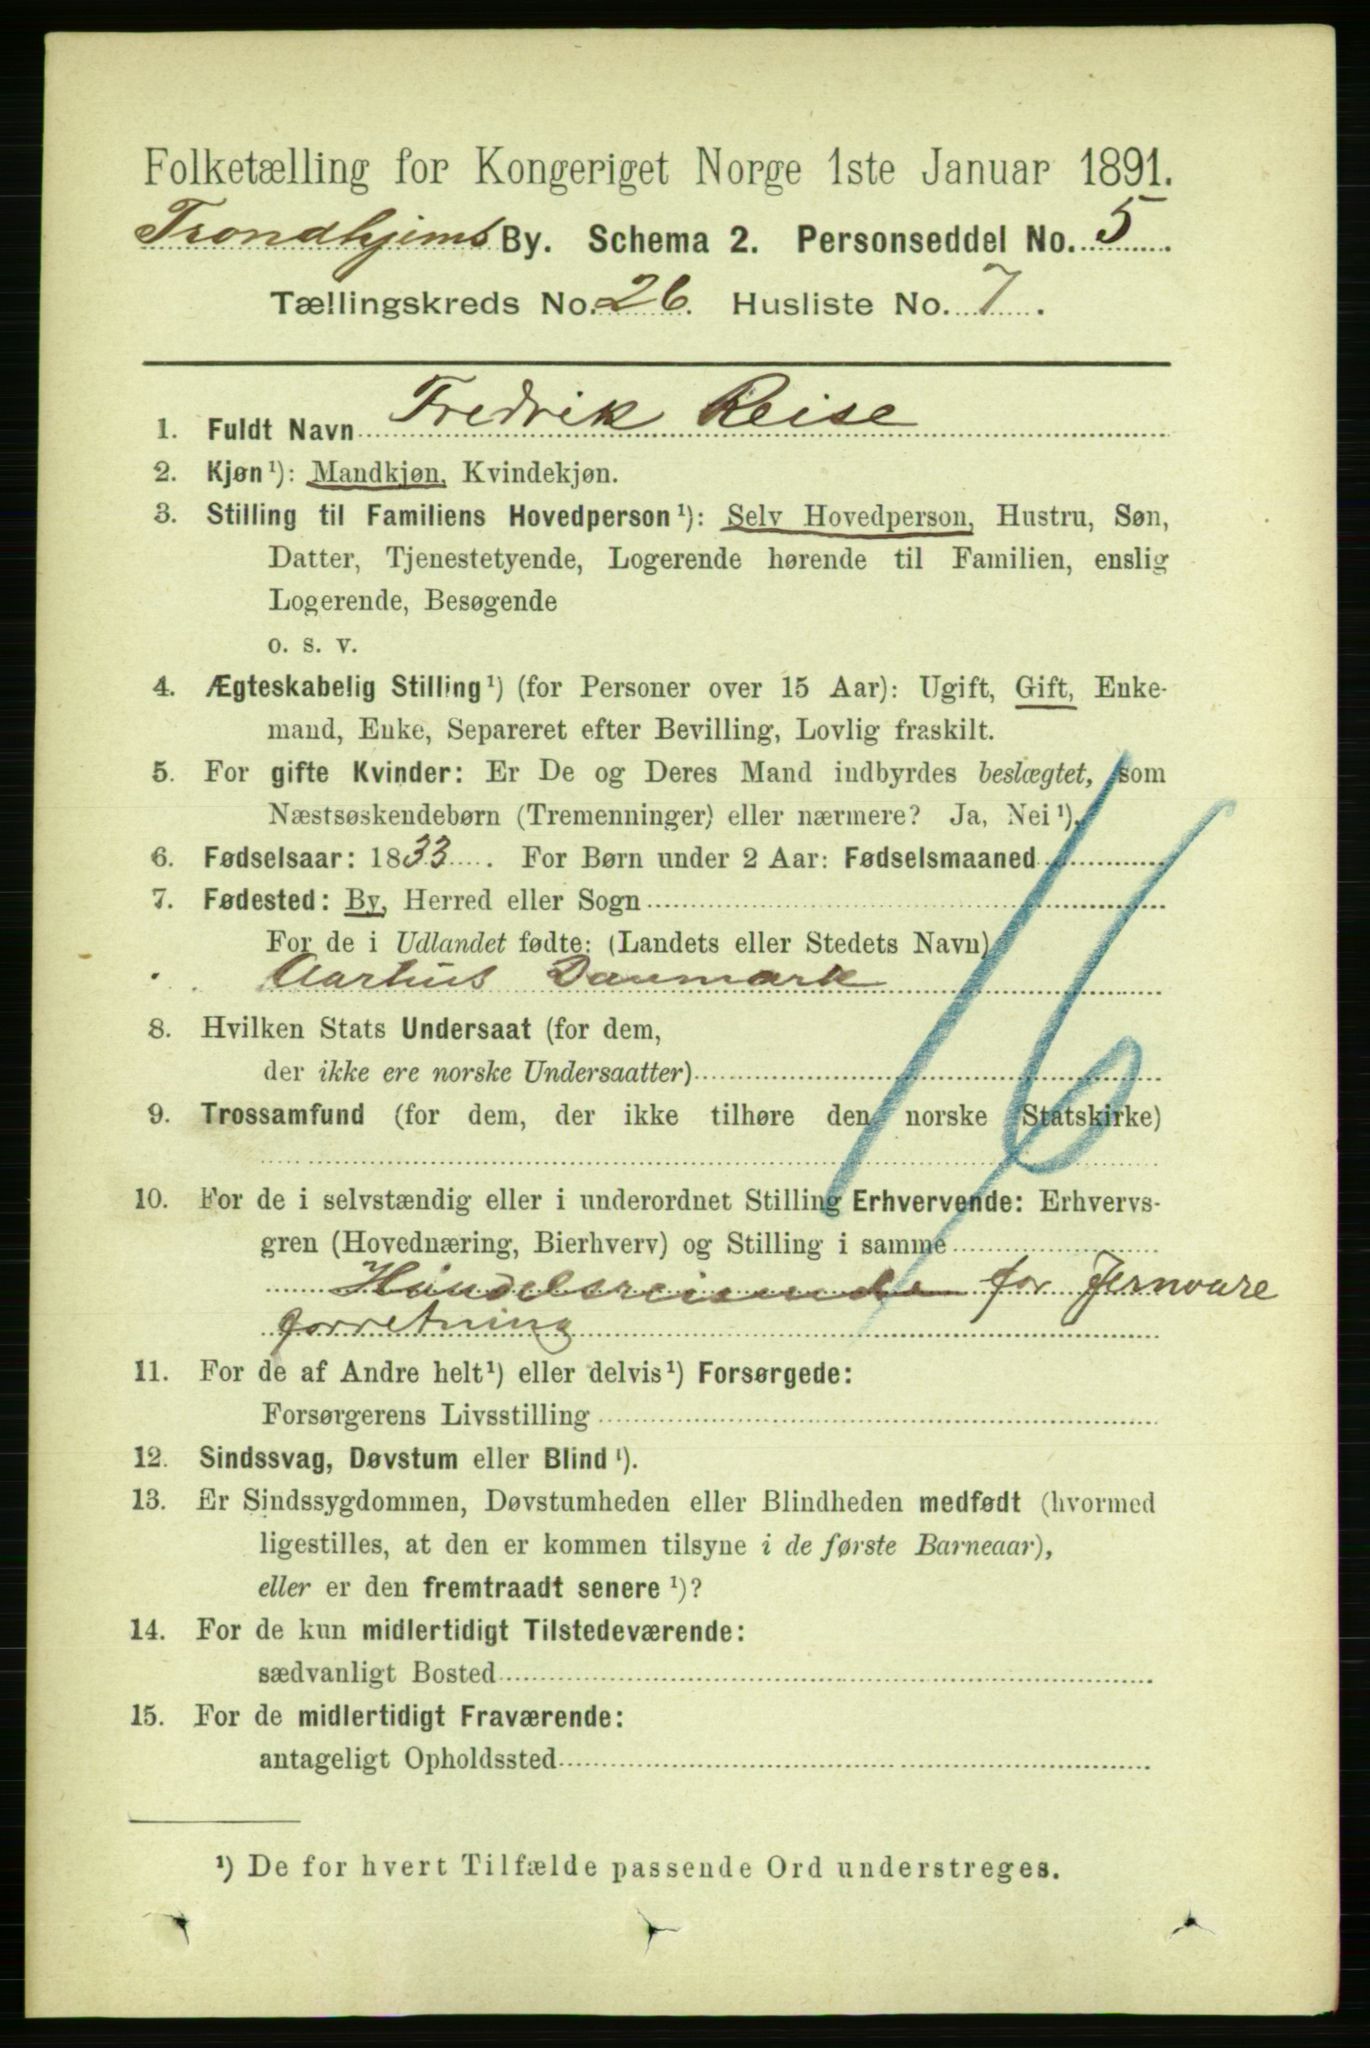 Folketælling for Kongeriget Norge 1ste Januar 1891.
Trondhjems By. Schema 2. Personseddel No. 5.
Tællingskreds No. 26. Husliste No. 7.
1. Fuldt Navn Fredrik Reise
2. Kjøn¹): Mandkjøn, Kvindekjøn.
3. Stilling til Familiens Hovedperson¹): Selv Hovedperson, Hustru, Søn,
Datter, Tjenestetyende, Logerende hørende til Familien, enslig
Logerende, Besøgende
o. s. v.
4. Ægteskabelig Stilling¹) (for Personer over 15 Aar): Ugift, Gift, Enke-
mand, Enke, Separeret efter Bevilling, Lovlig fraskilt.
5. For gifte Kvinder: Er De og Deres Mand indbyrdes beslægtet, som
Næstsøskendebørn (Tremenninger) eller nærmere? Ja, Nei¹).
6. Fødselsaar: 1833. For Børn under 2 Aar: Fødselsmaaned
7. Fødested: By, Herred eller Sogn
For de i Udlandet fødte: (Landets eller Stedets Navn)
Aarhus Danmark
8. Hvilken Stats Undersaat (for dem,
der ikke ere norske Undersaatter)
9. Trossamfund (for dem, der ikke tilhøre den norske Statskirke)
10. For de i selvstændig eller i underordnet Stilling Erhvervende: Erhvervs-
gren (Hovednæring, Bierhverv) og Stilling i samme
Handelsreisende for Jernvare
forretning
16
11. For de af Andre helt¹) eller delvis¹) Forsørgede:
Forsørgerens Livsstilling
12. Sindssvag, Døvstum eller Blind¹).
13. Er Sindssygdommen, Døvstumheden eller Blindheden medfødt (hvormed
ligestilles, at den er kommen tilsyne i de første Barneaar),
eller er den fremtraadt senere¹)?
14. For de kun midlertidigt Tilstedeværende:
sædvanligt Bosted
15. For de midlertidigt Fraværende:
antageligt Opholdssted
¹) De for hvert Tilfælde passende Ord understreges.